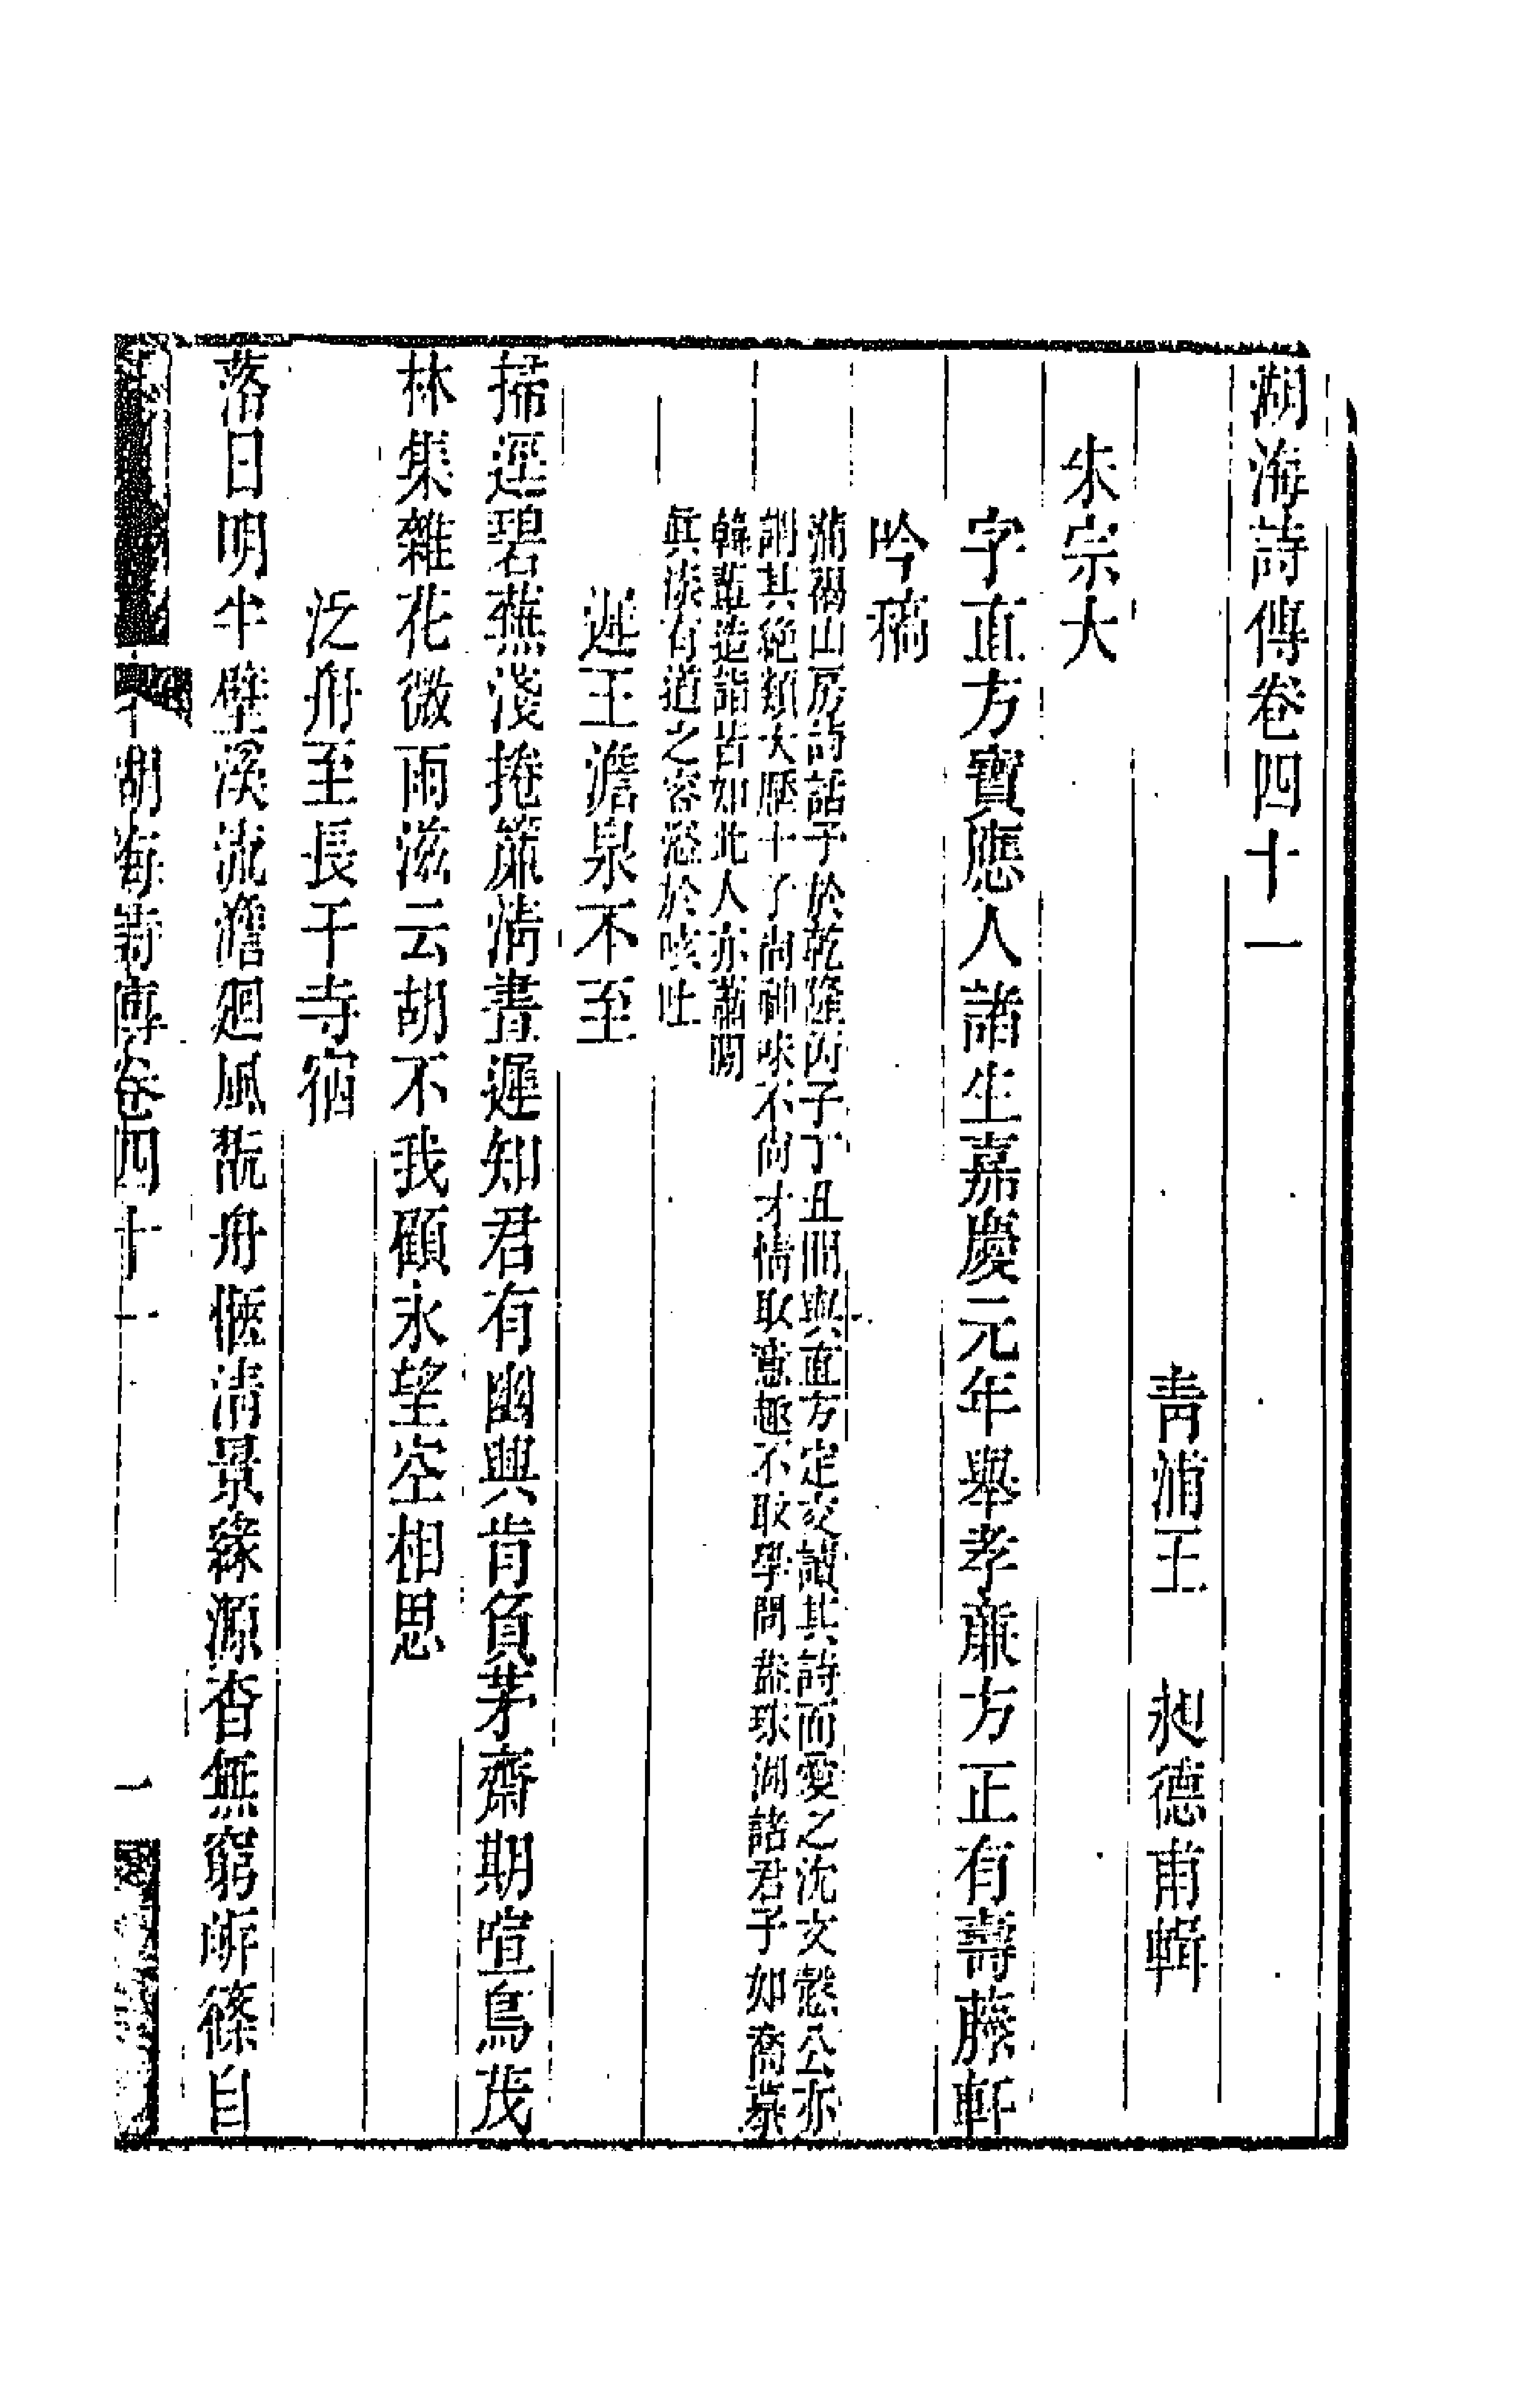 湖海詩傳卷四十一
青浦王　昶德甫輯
朱宗大
字直方寶應人諸生嘉慶元年舉孝廉方正有壽藤軒
吟稿
蒲褐山房詩話予於乾隆丙子丁丑間與直方定交讀其詩而愛之沈文慤公亦
謂其絕類大歷十子尚神味不尚才情取意趣不取學問葢珠湖諸君子如喬慕
韓輩造詣皆如此人亦蕭閒
眞淡有道之容溢於咳吐
遲王澹泉不至
掃逕碧蕪淺捲簾淸晝遲知君有幽興肯負茅齋期喧鳥茂
林集雜花微雨滋云胡不我顧永望空相思
泛舟至長干寺宿
落日明半壁溪流澹廻風翫舟愜淸景緣源杳無窮岸篠自
湖海詩傳卷四十一
一